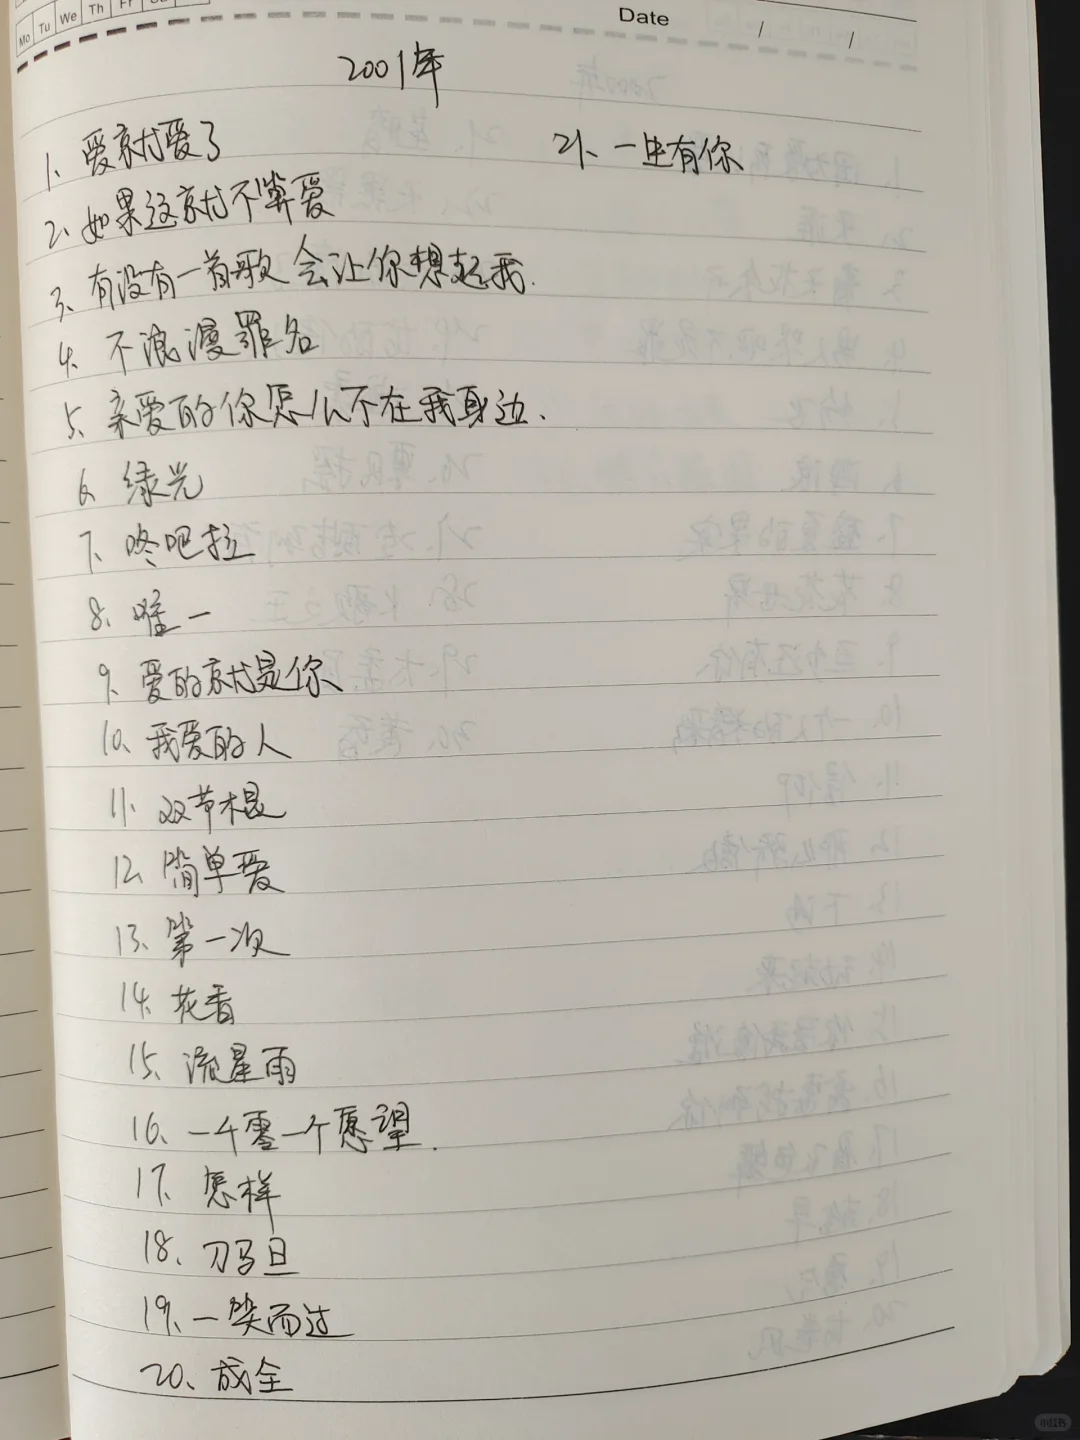 Mo Tu We Th Fr
Date / /
2001年
1、爱就爱了
2、如果这就不算爱
3、有没有一首歌会让你想起我.
4、不浪漫罪名
5、亲爱的你怎么不在我身边.
6、绿光
7、咚吧拉
8、唯一
9、爱的就是你
10、我爱的人
11、双节棍
12、简单爱
13、第一次
14、花香
15、流星雨
16、一千零一个愿望.
17、怎样
18、刀马旦
19、一笑而过
20、成全
21、一生有你
小红书